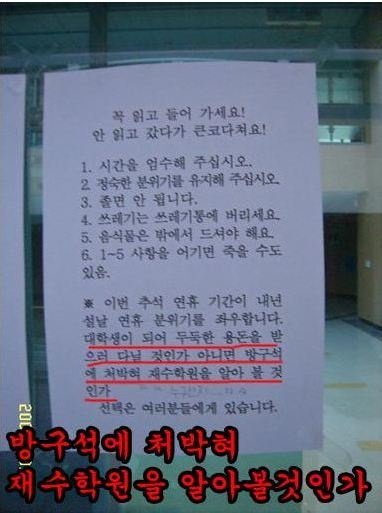 꼭 읽고 들어 가세요!
안 읽고 갔다가 큰코다쳐요!
1. 시간을 엄수해 주십시오.
2. 정숙한 분위기를 유지해 주십시오.
3. 졸면 안 됩니다.
4. 쓰레기는 쓰레기통에 버리세요.
5. 음식물은 밖에서 드셔야 해요.
6. 1~5 사항을 어기면 죽을 수도
있음.
※ 이번 추석 연휴 기간이 내년
설날 연휴 분위기를 좌우합니다.
대학생이 되어 두둑한 용돈을 받
으러 다닐 것인가 아니면 방구석
에 처박혀 재수학원을 알아 볼 것
인가
선택은 여러분들에게 있습니다.
방구석에 처박혀
재수학원을 알아볼것인가